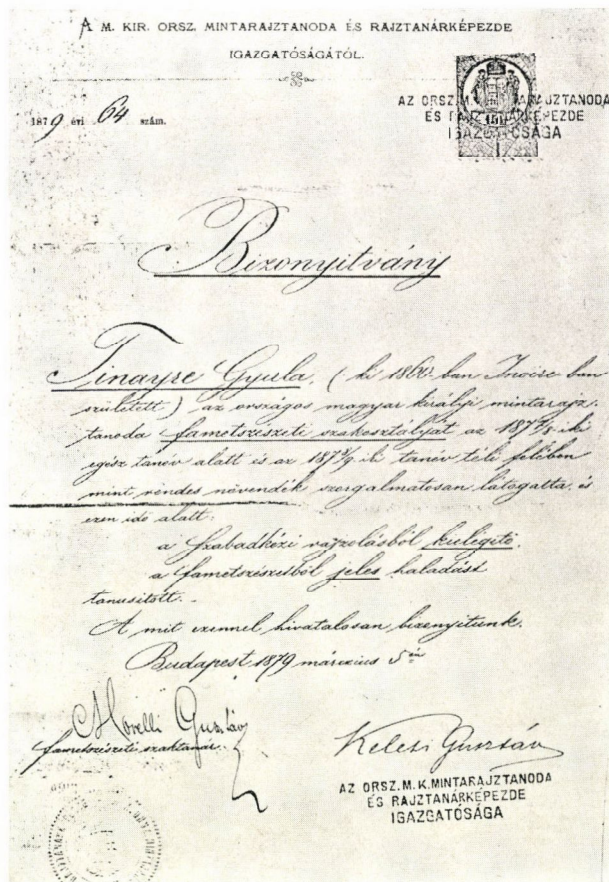 A M. KIR. ORSZ. MINTARAJZTANODA ÉS RAJZTANÁRKÉPEZDE
IGAZGATÓSÁGÁTÓL.
1879 évi 64 szám.
AZ ORSZ. M. K. MINTARAJZTANODA
ÉS RAJZTANÁRKÉPEZDE
IGAZGATÓSÁGA
Bizonyitvány
Tinayre Gyula, (ki 1860 ban ban
született) az országos magyar királyi mintarajz-
tanoda fametszészeti szakosztályát az 1877/8 iki
egész tanév alatt és az 1878/9 iki tanév téli felében
mint rendes növendék szorgalmatosan látogatta, és
ezen idő alatt:
a szabadkézi rajzolásból kielégítő,
a fametszészetből jeles haladást
tanusitott.
A mit ezennel hivatalosan bizonyitunk.
Budapest 1879 márczius 5én
Morelli Gusztáv
fametszészeti szaktanár.
Keleti Gusztáv
AZ ORSZ. M. K. MINTARAJZTANODA
ÉS RAJZTANÁRKÉPEZDE
IGAZGATÓSÁGA